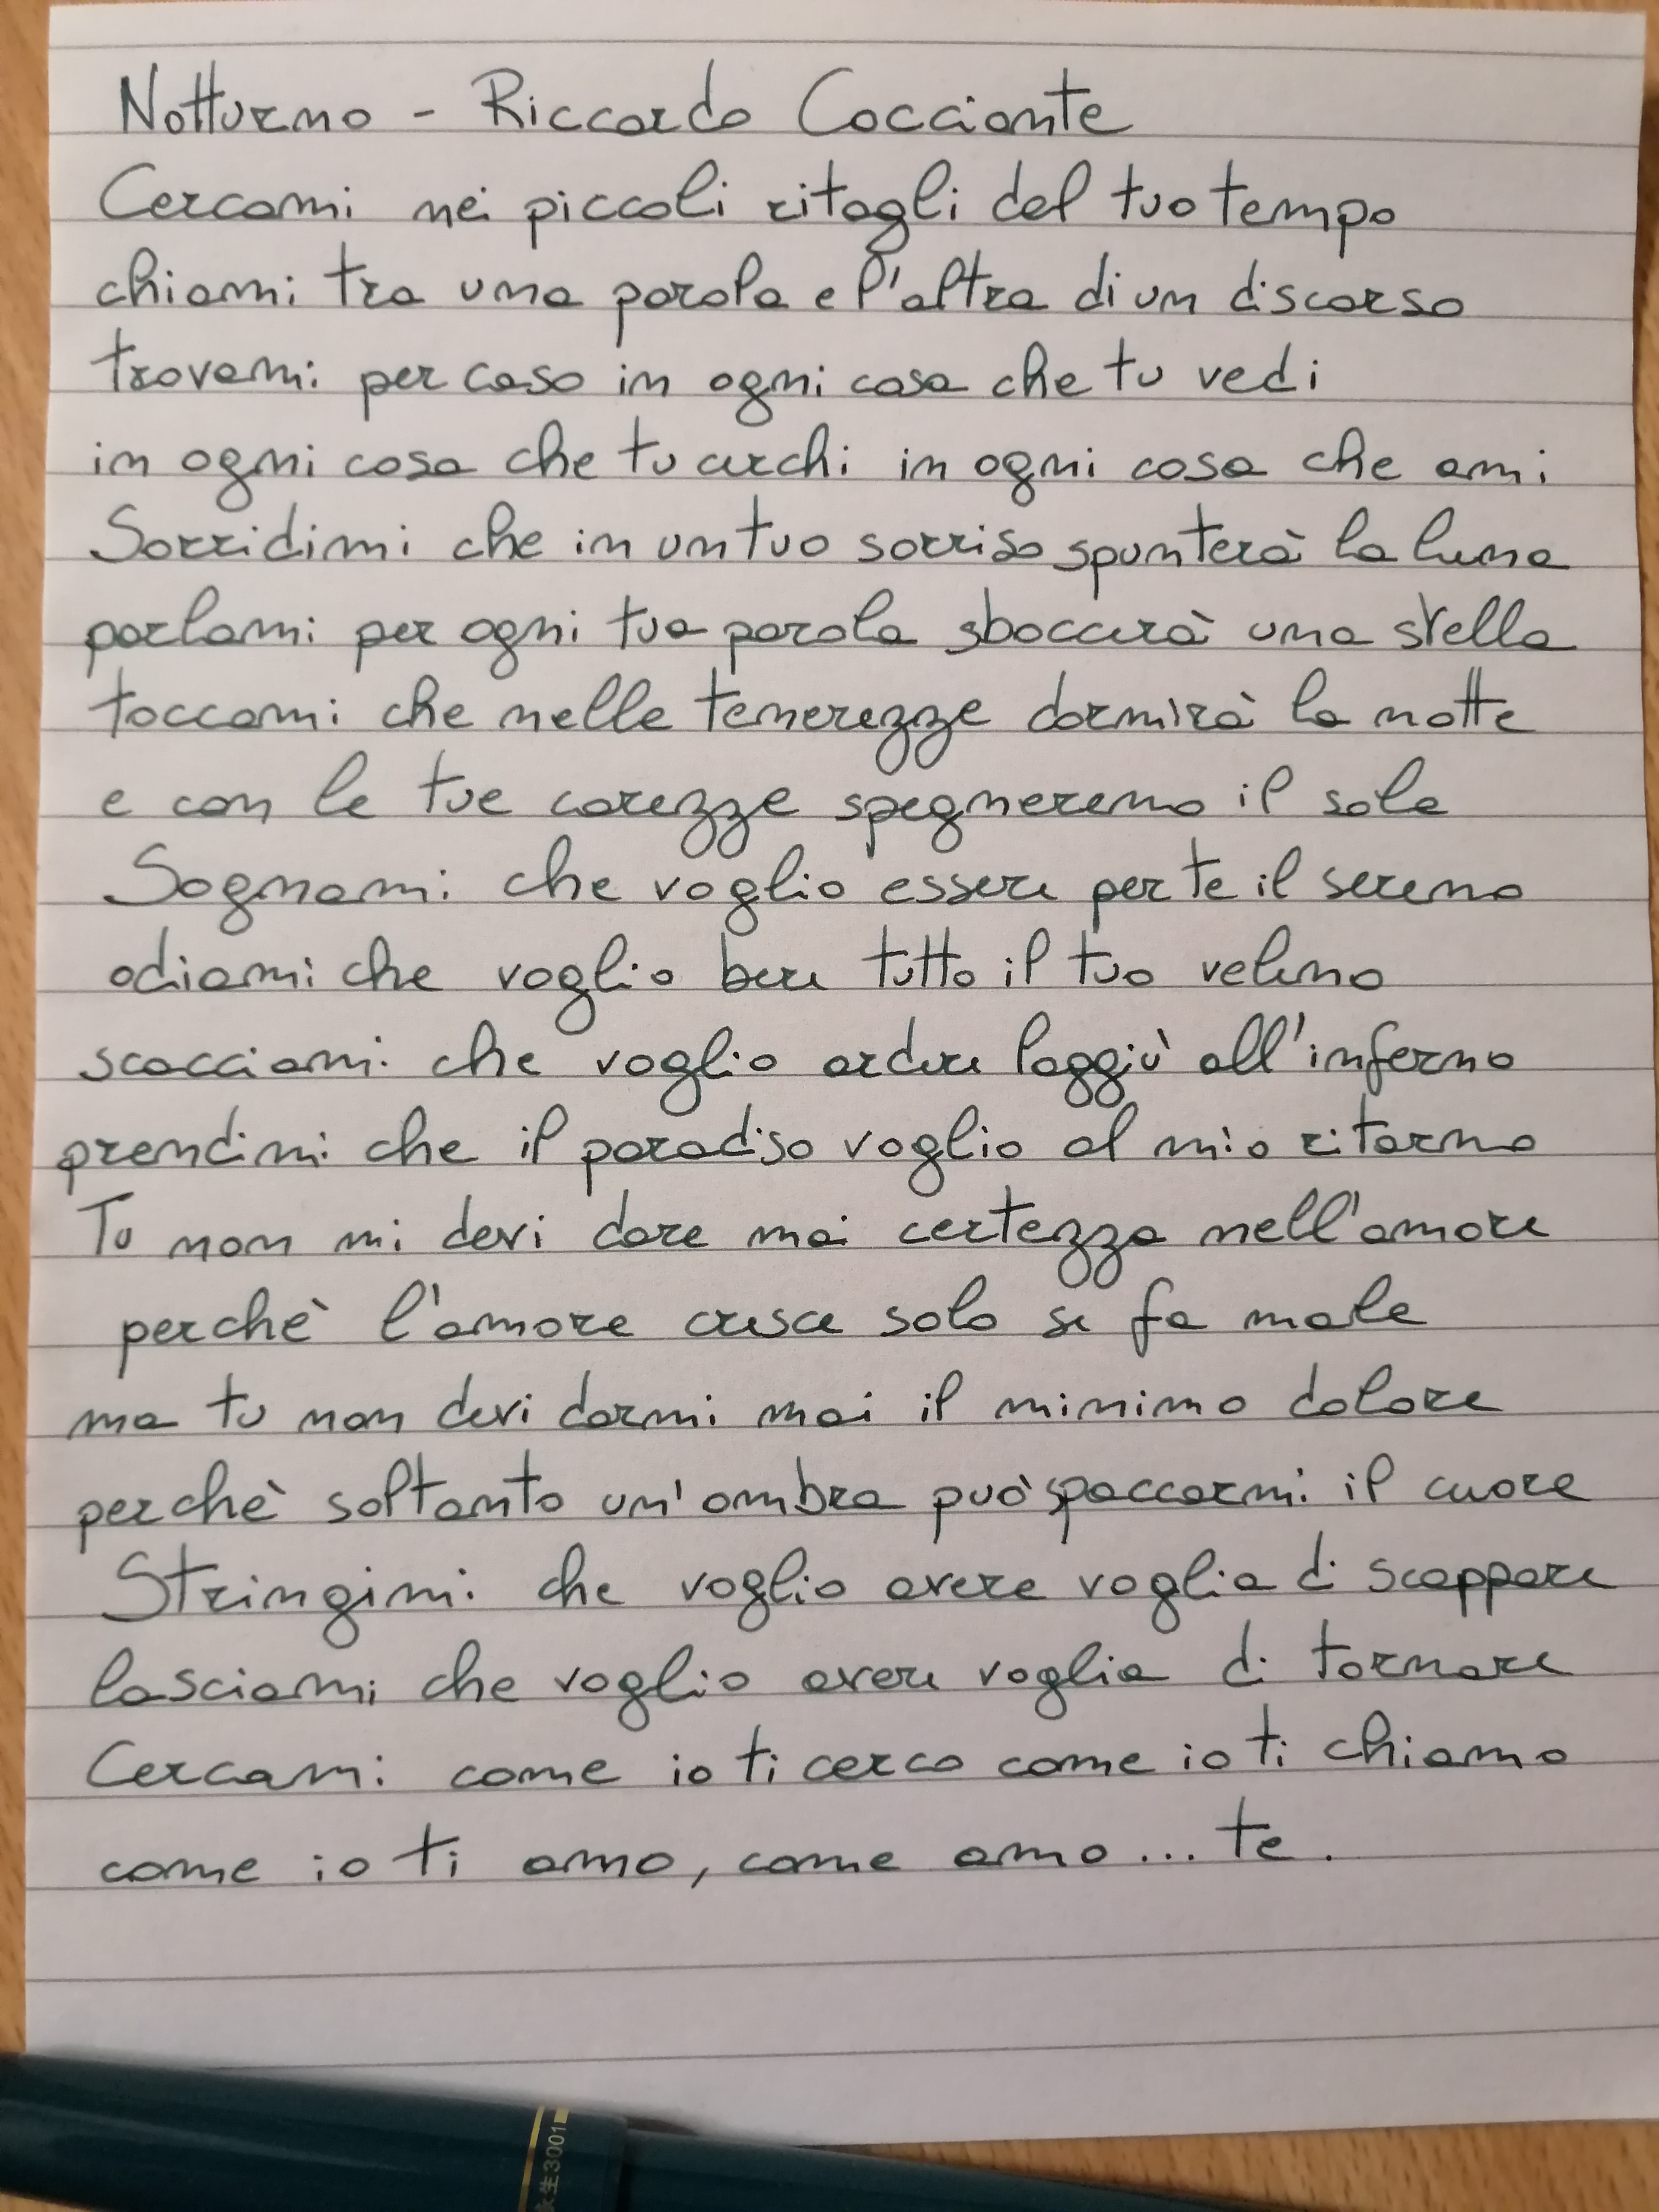 Notturno - Riccardo Cocciante
Cercami nei piccoli ritagli del tuo tempo
chiami tra una parola e l'altra di un discorso
trovami per caso in ogni cosa che tu vedi
in ogni cosa che tu cerchi in ogni cosa che ami
Sorridimi che in un tuo sorriso spunterà la luna
parlami per ogni tua parola sboccerà una stella
toccami che nelle tenerezze dormirà la notte
e con le tue carezze spegneremo il sole
Sognami che voglio essere per te il sereno
odiami che voglio bere tutto il tuo veleno
scacciami che voglio ardere laggiù all'inferno
prendimi che il paradiso voglio al mio ritorno
Tu non mi devi dare mai certezza nell'amore
perchè l'amore cresce solo se fa male
ma tu non devi darmi mai il minimo dolore
perchè soltanto un'ombra può spaccarmi il cuore
Stringimi che voglio avere voglia di scappare
lasciami che voglio avere voglia di tornare
Cercami come io ti cerco come io ti chiamo
come io ti amo, come amo... te.
永生3001